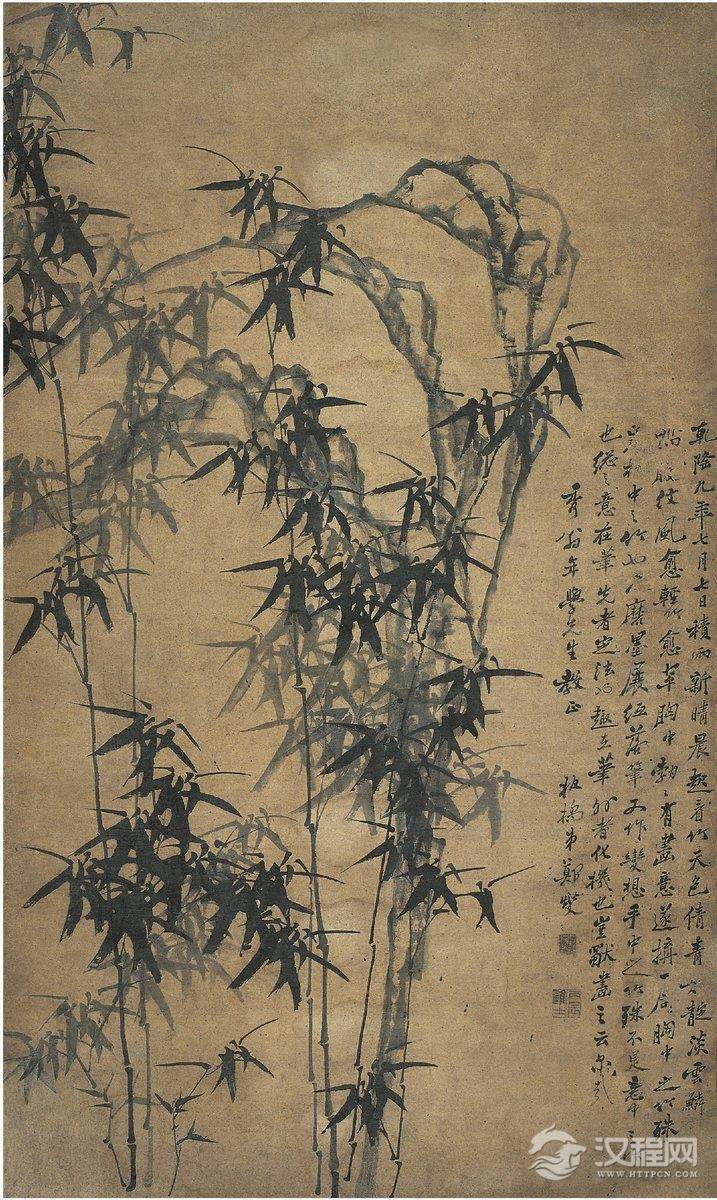 乾隆九年七月七日積雨新晴晨起看竹天色倩青 淡雲鱗
風愈輕竹愈 胸中勃勃有畫意遂 胸中之竹殊
中之竹也 磨墨展 落筆又作變想手中之竹殊不是意中
也總之意在筆先者定法也趣在筆外者化機也豈獸畫之云爾哉
秀翁年學先生教正
板橋弟鄭燮
汉程网
WWW.HTTPCN.COM